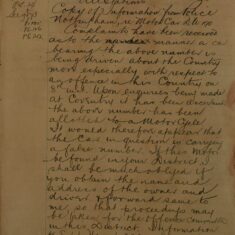 Copy of Information from Police
Nottingham, re Motor Car
Complaints have been received
as to the manner a car
bearing the above number is
being driven about the Country
more especially with respect to
an offence in this Country on
8th inst. Upon enquiries being made
at Coventry it has been ascertained
the above number has been
allotted to a Motor Cycle
It would therefore appear that
the Car in question is carrying
a false number. If the Motor
be found in your District I
shall be much obliged if
you obtain the name and
address of the owner and
driver & forward same to
me so that proceedings may
be taken for the offence committed
in this District. Information